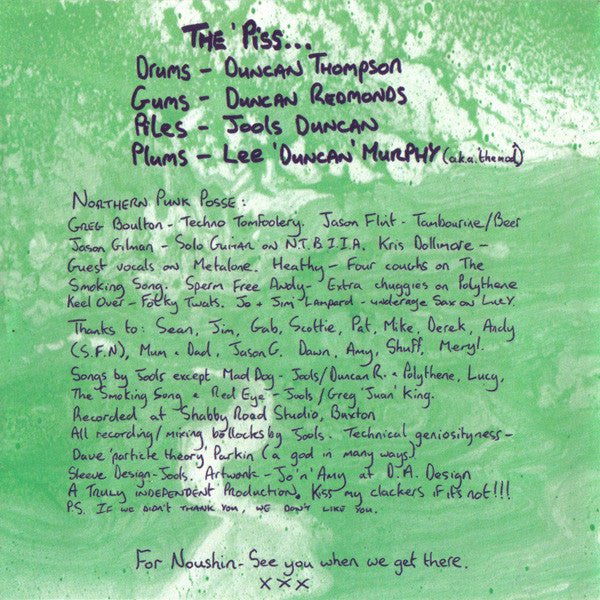 The 'Piss...
Drums - Duncan Thompson
Gums - Duncan Redmonds
Piles - Jools Duncan
Plums - Lee 'Duncan' Murphy (a.k.a. 'the mod')
Northern Punk Posse:
Greg Boulton - Techno Tomfoolery. Jason Flint - Tambourine/Beer
Jason Gilman - Solo Guitar on N.T.B.I.I.A. Kris Dollimore -
Guest vocals on Metalone. Heathy - Four coughs on The
Smoking Song. Sperm Free Andy - Extra chuggies on Polythene
Keel Over - Folky Twats. Jo + Jim Lampard - underage Sax on Lucy.
Thanks to: Sean, Jim, Gab, Scottie, Pat, Mike, Derek, Andy
(S.F.N), Mum + Dad, Jason G. Dawn, Amy, Shuff, Meryl.
Songs by Jools except Mad Dog - Jools/Duncan R. + Polythene, Lucy,
The Smoking Song + Red Eye - Jools/Greg 'Juan' King.
Recorded at Shabby Road Studio, Buxton
All recording/mixing bollocks by Jools. Technical geniosityness -
Dave 'particle theory' Parkin (a god in many ways)
Sleeve Design - Jools. Artwork - Jo 'n' Amy at D.A. Design
A Truly independent Production. Kiss my clackers if it's not!!!
P.S. If we didn't thank you, we don't like you.
For Noushin - See you when we get there.
x x x